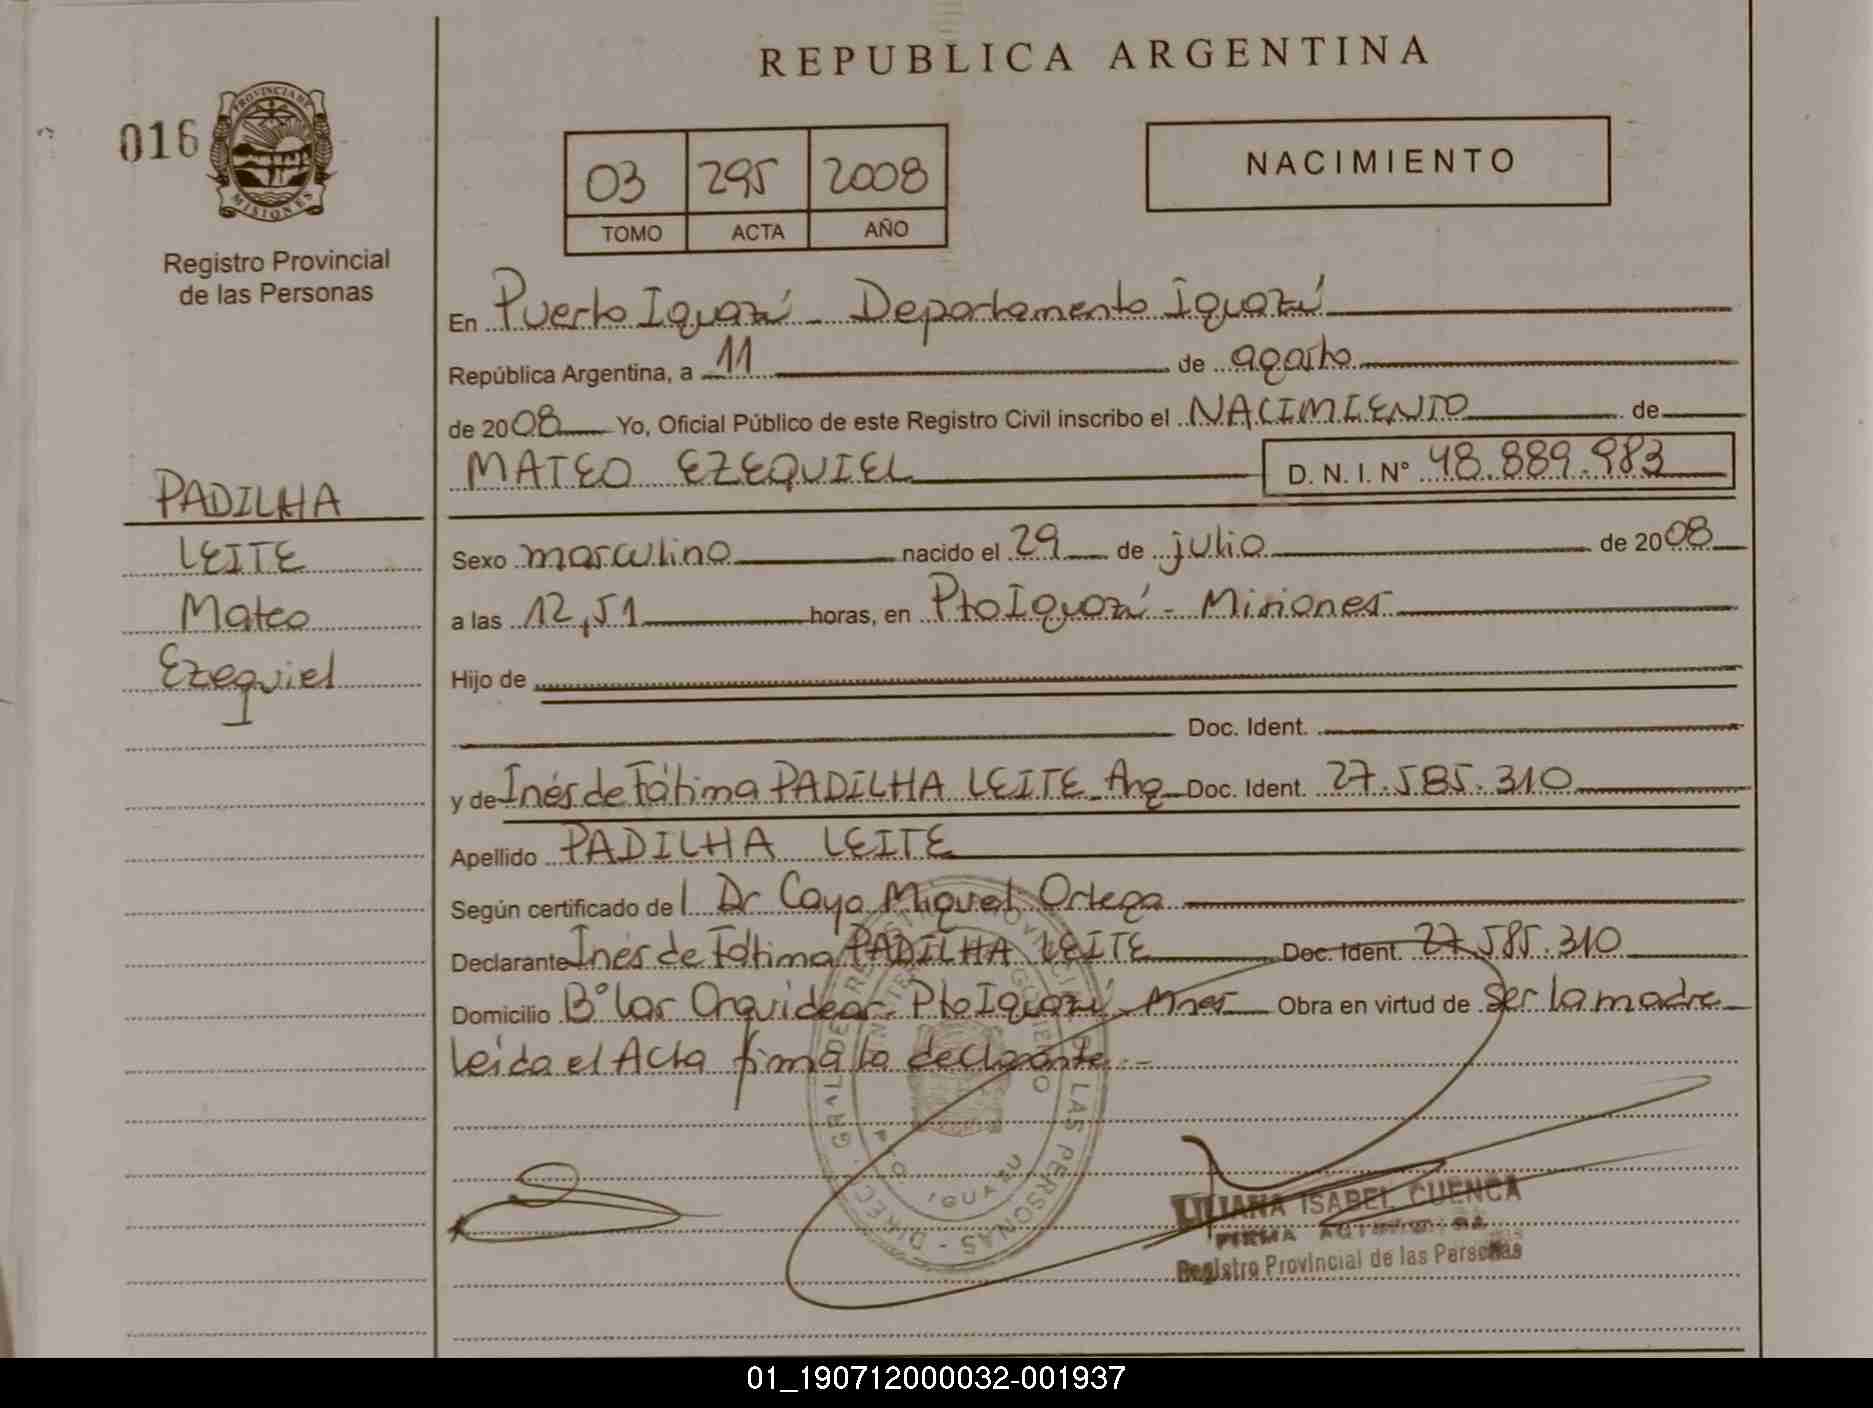 REPUBLICA ARGENTINA
016
PROVINCIA DE
MISIONES
Registro Provincial
de las Personas
03 295 2008
TOMO ACTA AÑO
NACIMIENTO
En Puerto Iguazú - Departamento Iguazú
República Argentina, a 11 de agosto
de 2008 Yo, Oficial Público de este Registro Civil inscribo el NACIMIENTO de
MATEO EZEQUIEL D. N. I. N° 48.889.983
PADILHA
LEITE
Mateo
Ezequiel
Sexo masculino nacido el 29 de julio de 2008
a las 12,51 horas, en Pto Iguazú - Misiones
Hijo de
Doc. Ident.
y de Inés de Fátima PADILHA LEITE Arg Doc. Ident. 27.585.310
Apellido PADILHA LEITE
Según certificado del Dr Cayo Miguel Ortega
Declarante Inés de Fátima PADILHA LEITE Doc. Ident. 27.585.310
Domicilio B° las Orquideas - Pto Iguazú - Mnes Obra en virtud de ser la madre
leida el Acta firma la declarante.-
LAS PERSONAS - DIREC. GRAL. DE
PTO IGUAZU
LILIANA ISABEL CUENCA
FIRMA
Registro Provincial de las Personas
01_190712000032-001937